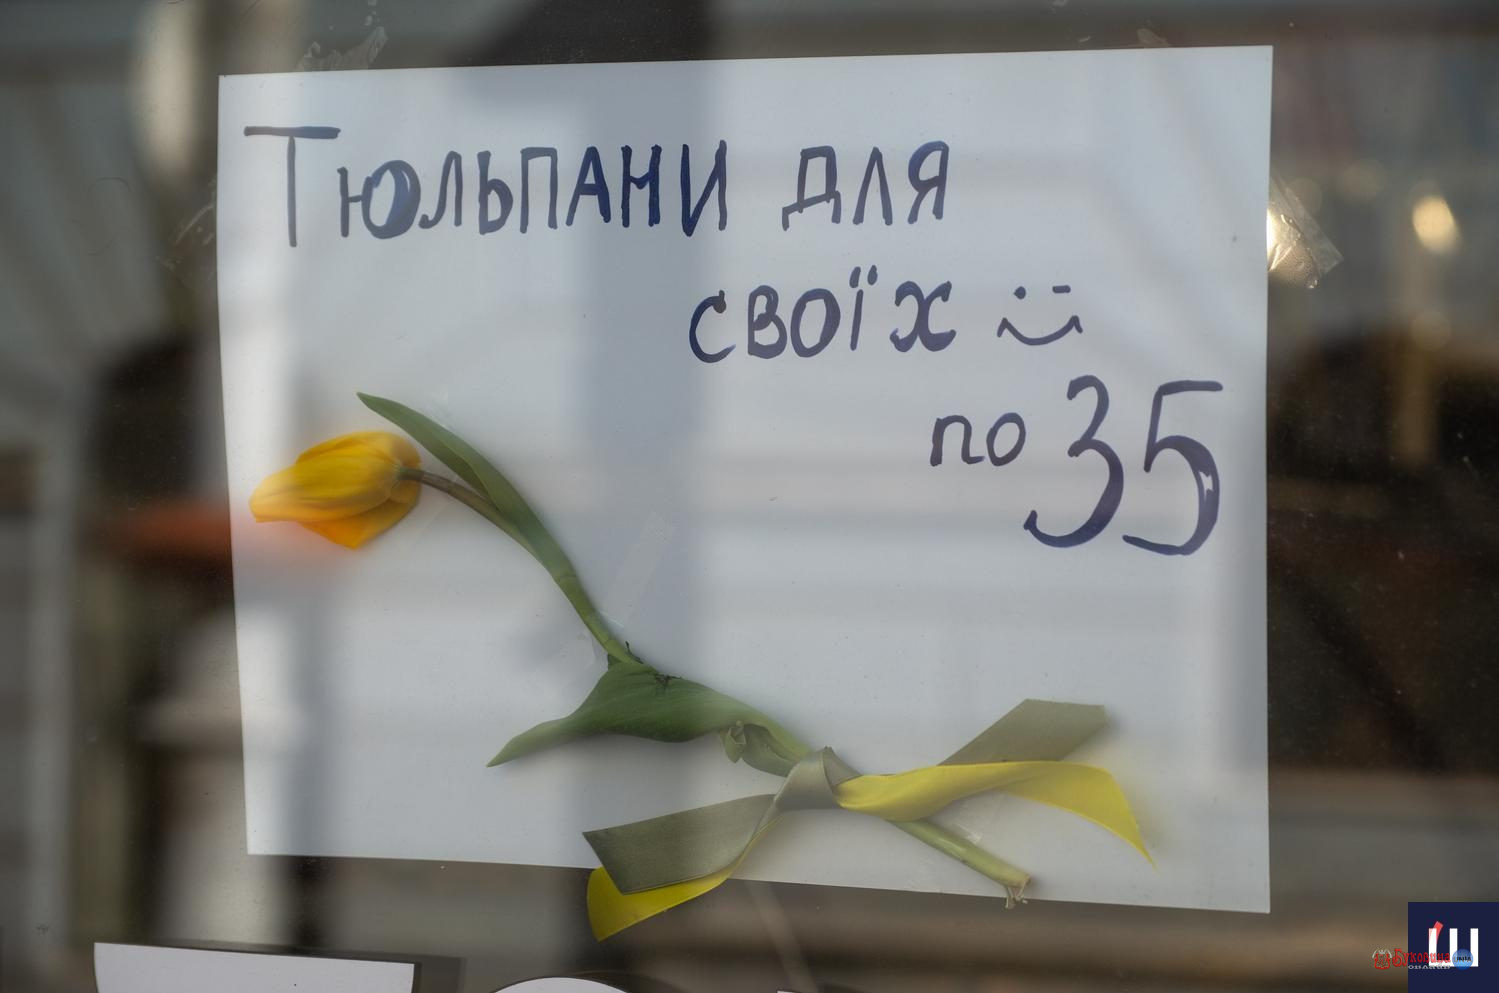 Тюльпани для
своїх
по 35
Ш
Буковина